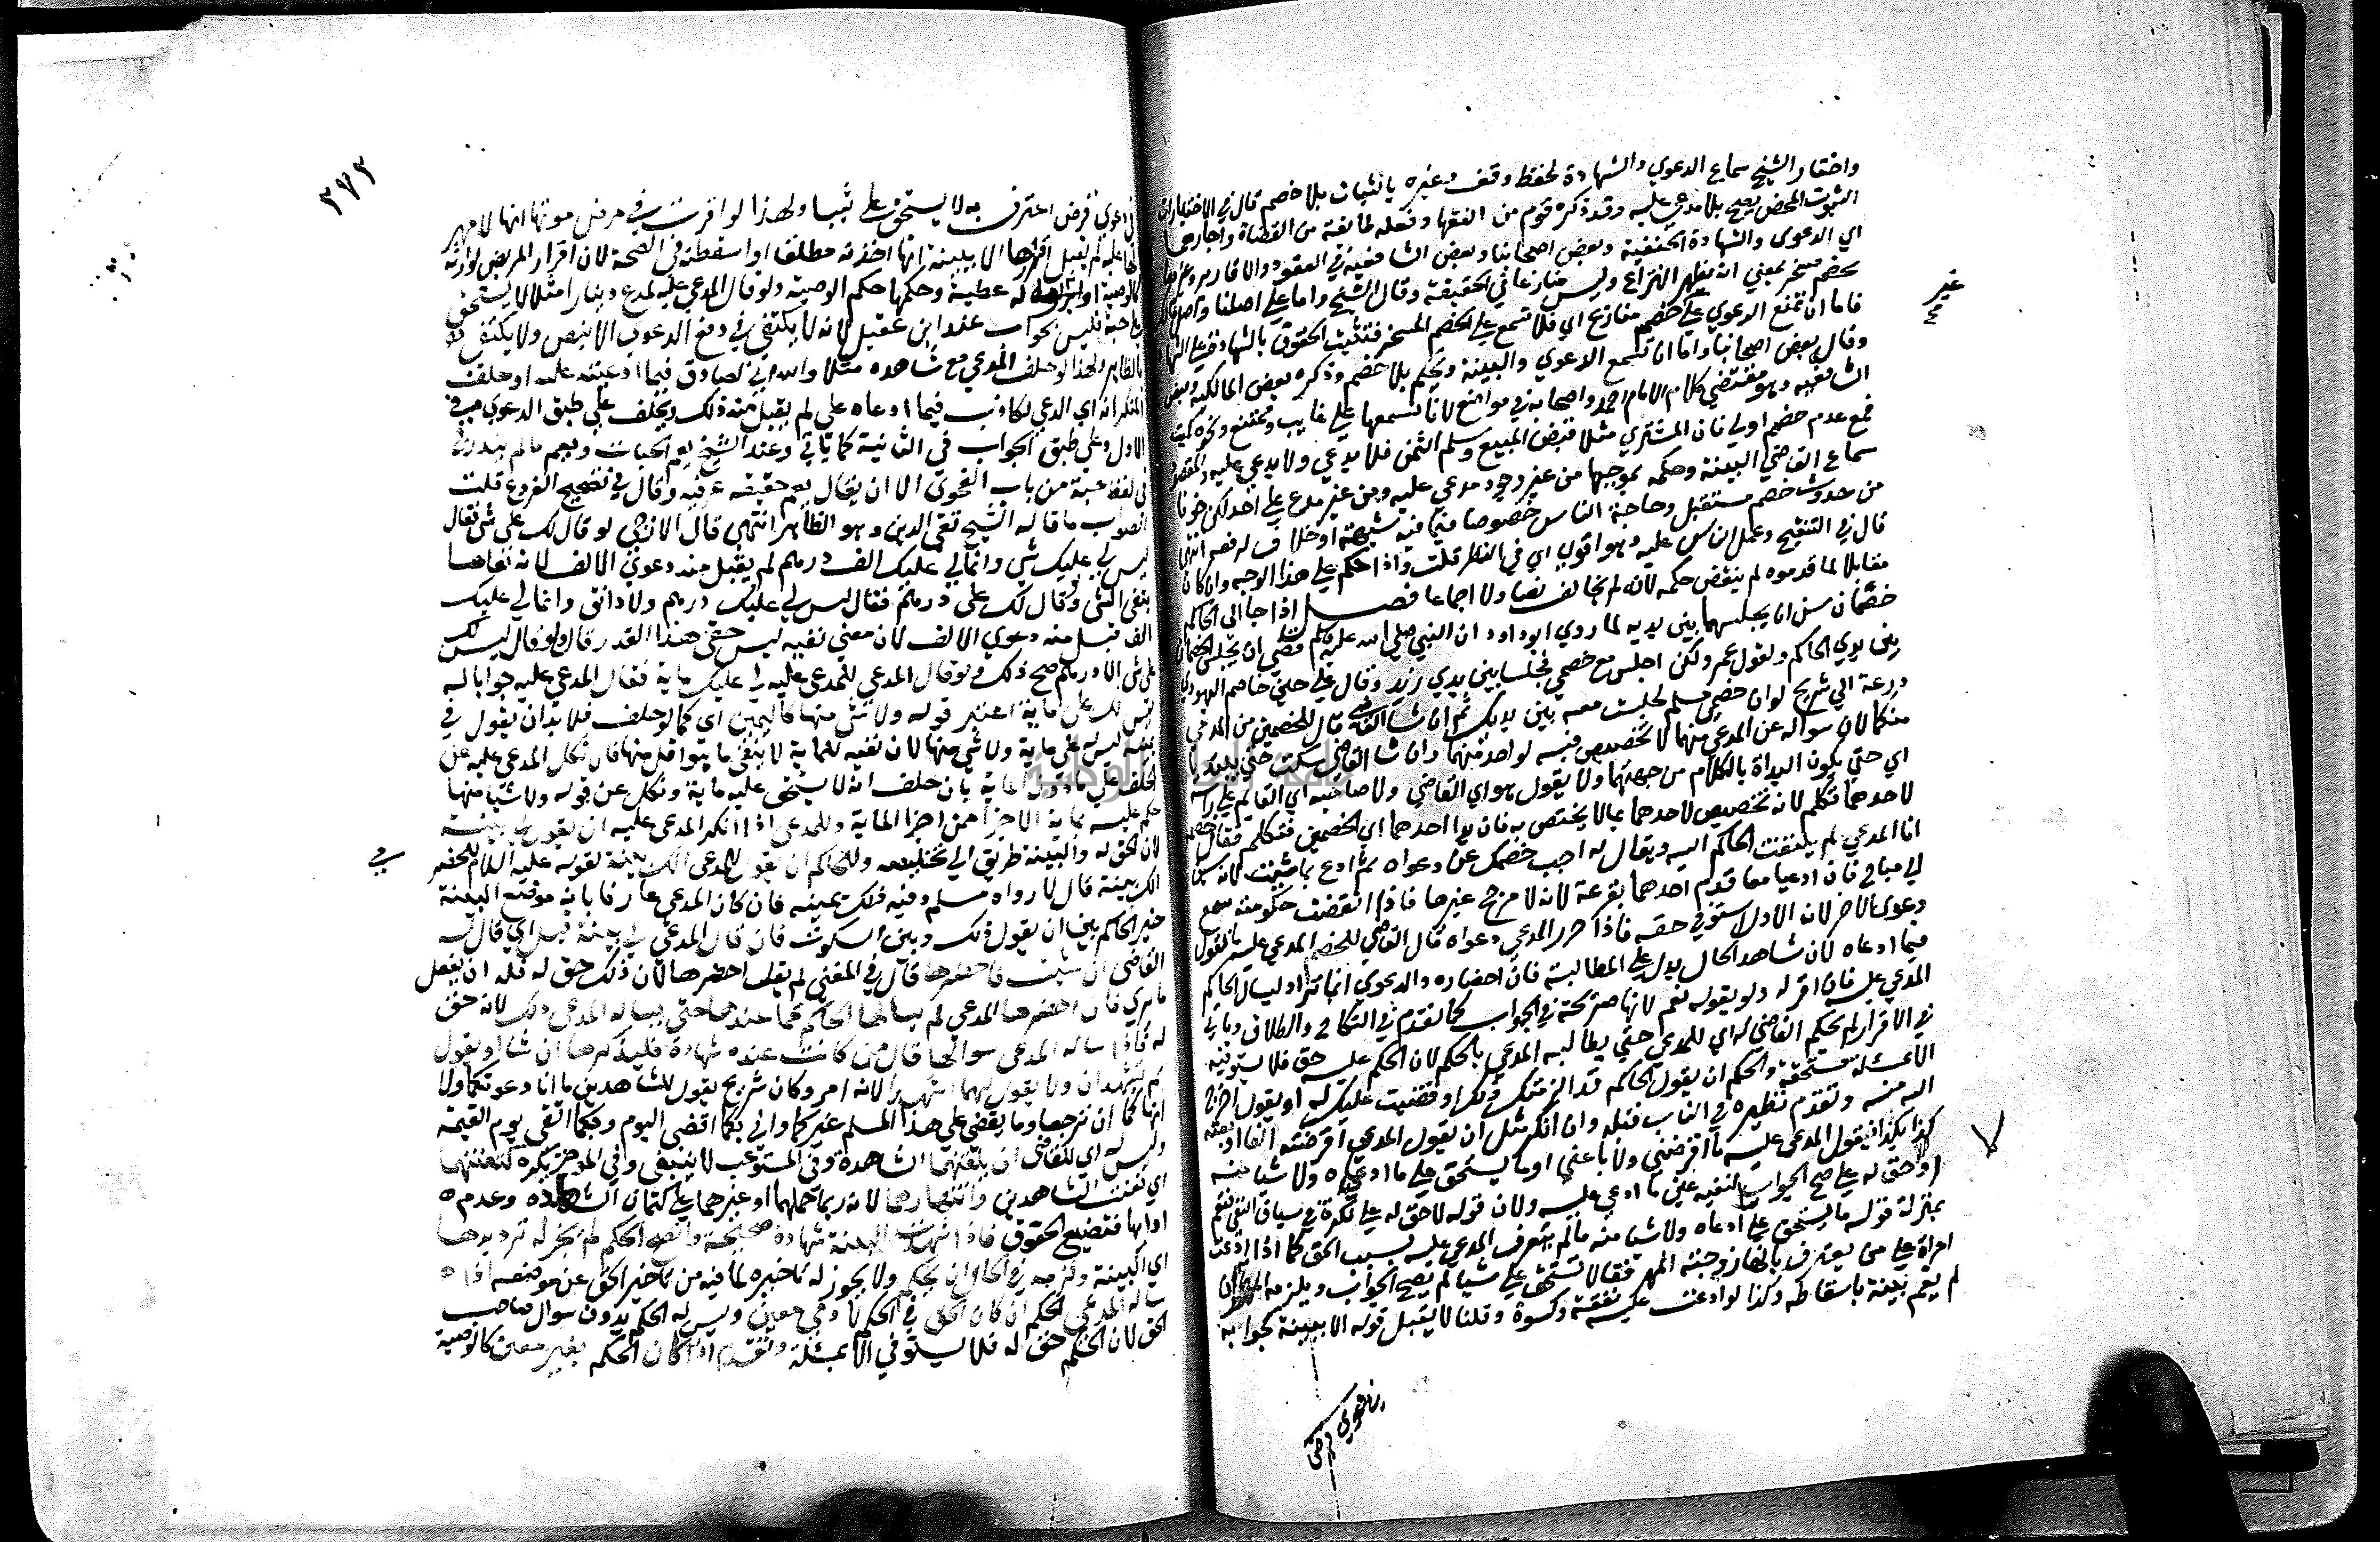 واختار الشيخ سماع الدعوي والشهادة لحفظ وقف وغيره بالثبات بلا خصم قال في الاختيارات
الثبوت المحض يصح بلا مدعي عليه وقد ذكره قوم من الفقها وفعله طائفة من القضاة واجازها
اي الدعوى والشهادة الحنفية وبعض اصحابنا وبعض الشافعية في العقود والاقارير وغيرها
بخصم مسخر بمعني انه يظهر النزاع وليس منازعا في الحقيقة وقال الشيخ واما علي اصلنا واصل مالك
فاما ان تمنع الدعوي علي خصم منازع اي فلا تسمع علي الخصم المسخر فتثبت الحقوق بالشهادة علي الشهادة
وقاله بعض اصحابنا واما ان تسمع الدعوي والبينة ويحكم بلا خصم وذكره بعض المالكية وبعض
الشافعية وهو مقتضي كلام الامام احمد واصحابه في مواضع لانا نسمعها علي غايب وممتنع ونحوه كميت
فمع عدم خصم اولي فان المشتري مثلا قبض المبيع وسلم الثمن فلا يدعي ولا يدعي عليه والمقصود
سماع القاضي البينة وحكمه بموجبها من غير وجود مدعي عليه ومن غير مدع علي احد لكن خوفا
من حدوث خصم مستقبل وحاجة الناس خصوصا فيما فيه شبهة او خلاف لرفعه انتهى
قال في التنقيح وعمل الناس عليه وهو اقوي اي في النظر قلت واذا حكم علي هذا الوجه وان كان
مقابلا لما قدموه لم ينقض حكمه لانه لم يخالف نصا ولا اجماعا فصل اذا جا الى الحاكم
خصمان سن ان يجلسهما بين يديه لما روي ابو داود ان النبي صلي الله عليه وسلم قضي ان يجلس الخصمان
بين يدي الحاكم ولقول عمر ولكن اجلس مع خصمي فجلسا بين يدي زيد وقال علي حين خاصم اليهودي
درعه الي شريح لو ان خصمي مسلم لجلست معه بين يديك ثم ان شا القاضي قال للخصمين من المدعي
منكما لان سواله عن المدعي منهما لا تخصيص فيه لواحد منهما وان شا القاضي سكت حتي يبتديا
اي حتي يكون البداة بالكلام من جهتهما ولا يقول هو اي القاضي ولا صاحبه اي القايم علي راسه
لاحدهما تكلم لانه تخصيص لاحدهما بما لا يختص به فان بدا احدهما اي الخصمين فتكلم فقال خصمه
انا المدعي لم يلتفت الحاكم اليه ويقال له اجب خصمك عن دعواه ثم ادع بما شيت لانه سبق
الي مباح فان ادعيا معا قدم احدهما بقرعة لانه لا مرجح غيرها فاذا انقضت حكومته سمع
دعوى الاخر لان الاول استوفي حقه فاذا حرر المدعي دعواه قال القاضي للخصم المدعي عليه ما تقول
فيما ادعاه لان شاهد الحال يدل علي المطالبة فان احضاره والدعوي انما تراد ليسال الحاكم
المدعي عليه فان اقر له ولو بقوله نعم لانها صريحة في الجواب كما تقدم في النكاح والطلاق وياتي
في الاقرار لم يحكم القاضي له اي للمدعي حتي يطالبه المدعي بالحكم لان الحكم عليه حق فلا يستوفيه
الا بمسئلة مستحقه والحكم ان يقول الحاكم قد الزمتك ذلك او قضيت عليك له او يقول اخرج
اليه منه وتقدم نظيره في الباب قبله وان انكر مثل ان يقول المدعي اقرضته الفا او بعته
كذا بكذا فيقول المدعي عليه ما اقرضني ولا باعني او ما يستحق علي ما ادعاه ولا شيا منه
او لا حق له علي صح الجواب لنفيه عين ما ادعي عليه ولان قوله لا حق له علي نكرة في سياق النفي فتعم
بمنزلة قوله ما يستحق علي ما ادعاه ولا شيا منه ما لم يعترف المدعي عليه بسبب الحق كما اذا ادعت
امراة علي من يعترف بانها زوجته المهر فقال لا تستحق علي شيا لم يصح الجواب ويلزمه المهر ان
لم يقم بينة باسقاطه وكذا لو ادعت عليه نفقة وكسوة وقلنا لا يقبل قوله الا ببينة كجوابه
غير
٣٧٣
في دعوي قرض اعترف به لا يستحق علي شيا ولهذا لو اقرت في مرض موتها انها لا مهر
لها عليه لم يقبل اقرارها الا ببينة انها اخذته مطلقا او اسقطته في الصحة لان اقرار المريض لوارثه
كالوصية له عطية وحكمها حكم الوصية ولو قال المدعي عليه لمدع دينارا مثلا لا يستحق
علي حبة فليس بجواب عند ابن عقيل لانه لا يكتفي في دفع الدعوي الا بنص ولا يكتفي فيه
بالظاهر ولهذا لو حلف المدعي مع شاهده مثلا والله اني لصادق فيما ادعيته عليه او حلف
المنكر انه اي المدعي لكاذب فيما ادعاه علي لم يقبل منه ذلك ويحلف علي طبق الدعوي في
الاول وعلي طبق الجواب في الثانية كما ياتي وعند الشيخ يعم الحبات ويعم ما لم يندرج
في لفظ حبة من باب الفحوى الا ان يقال يعم حقيقة عرفية وقال في تصحيح الفروع قلت
الصواب ما قاله الشيخ تقي الدين وهو الظاهر انتهي قال الازجي لو قال لك علي شي فقال
ليس لي عليك شي وانما لي عليك الف درهم لم يقبل منه دعوي الالف لانه نفاها
بنفي الشي ولو قال لك علي درهم فقال ليس لي عليك درهم ولا دانق وانما لي عليك
الف قبل منه دعوي الالف لان معني نفيه ليس حقي هذا القدر قال ولو قال ليس لك
علي شي الا درهم صح ذلك ولو قال المدعي للمدعي عليه لي عليك ماية فقال المدعي عليه جوابا له
ليس لك علي ماية اعتبر قوله ولا شي منها كاليمين اي كما لو حلف فلا بد ان يقول في
يمينه ليس له علي ماية ولا شي منها لان نفيه للماية لا ينفي ما يتواصل منها فان نكل المدعي عليه عن
الحلف علي ما دون الماية بان حلف انه لا يستحق عليه ماية ونكل عن قوله ولا شيا منها
حكم عليه بماية الا جزا من اجزا الماية وللمدعي اذا انكر المدعي عليه ان يقول لي بينة
لان الحق له والبينة طريق الي تخليصه وللحاكم ان يقول للمدعي الك بينة لقوله عليه السلام للحضرمي
الك بينة قال لا رواه مسلم وفيه فلك يمينه فان كان المدعي عارفا بانه موضع البينة
خير الحاكم بين ان يقول ذلك وبين السكوت فان قال المدعي لي بينة قيل اي قال له
القاضي ان شيت فاحضرها قال في المغني لم يقل احضرها لان ذلك حق له فله ان يفعل
ما يري فان احضرها المدعي لم يسالها الحاكم عما عندها حتي يساله المدعي ذلك لانه حق
له فاذا ساله المدعي سوالها قال من كانت عنده شهادة فليذكرها ان شا او يقول
بم تشهدان ولا يقول لهما اشهدا لانه امر وكان شريح يقول للشاهدين ما انا دعوتكما ولا
انهاكما ان ترجعا وما يقضي علي هذا المسلم غيركما واني بكما اقضي اليوم وبكما اتقي يوم القيمة
وليس له اي للقاضي ان يلقنهما الشهادة وفي المستوعب لا ينبغي وفي الموجز يكره كتعنتهما
اي تعنت الشاهدين وانتهارهما لانه ربما حملهما او غيرهما علي كتمان الشهادة وعدم
ادايها فتضيع الحقوق فاذا شهدت البينة شهادة صحيحة واتضح الحكم لم يجز له ترديدها
اي البينة ولزمه في الحال ان يحكم ولا يجوز له تاخيره لما فيه من تاخير الحق عن موضعه اذا
ساله المدعي الحكم ان كان الحق في الحكم لادمي معين وليس له الحكم بدون سوال صاحب
الحق لان الحكم حق له فلا يستوفي الا بمسئلة وتقدم اذا كان الحكم لغير معين كالوصية
في دعوي قرض